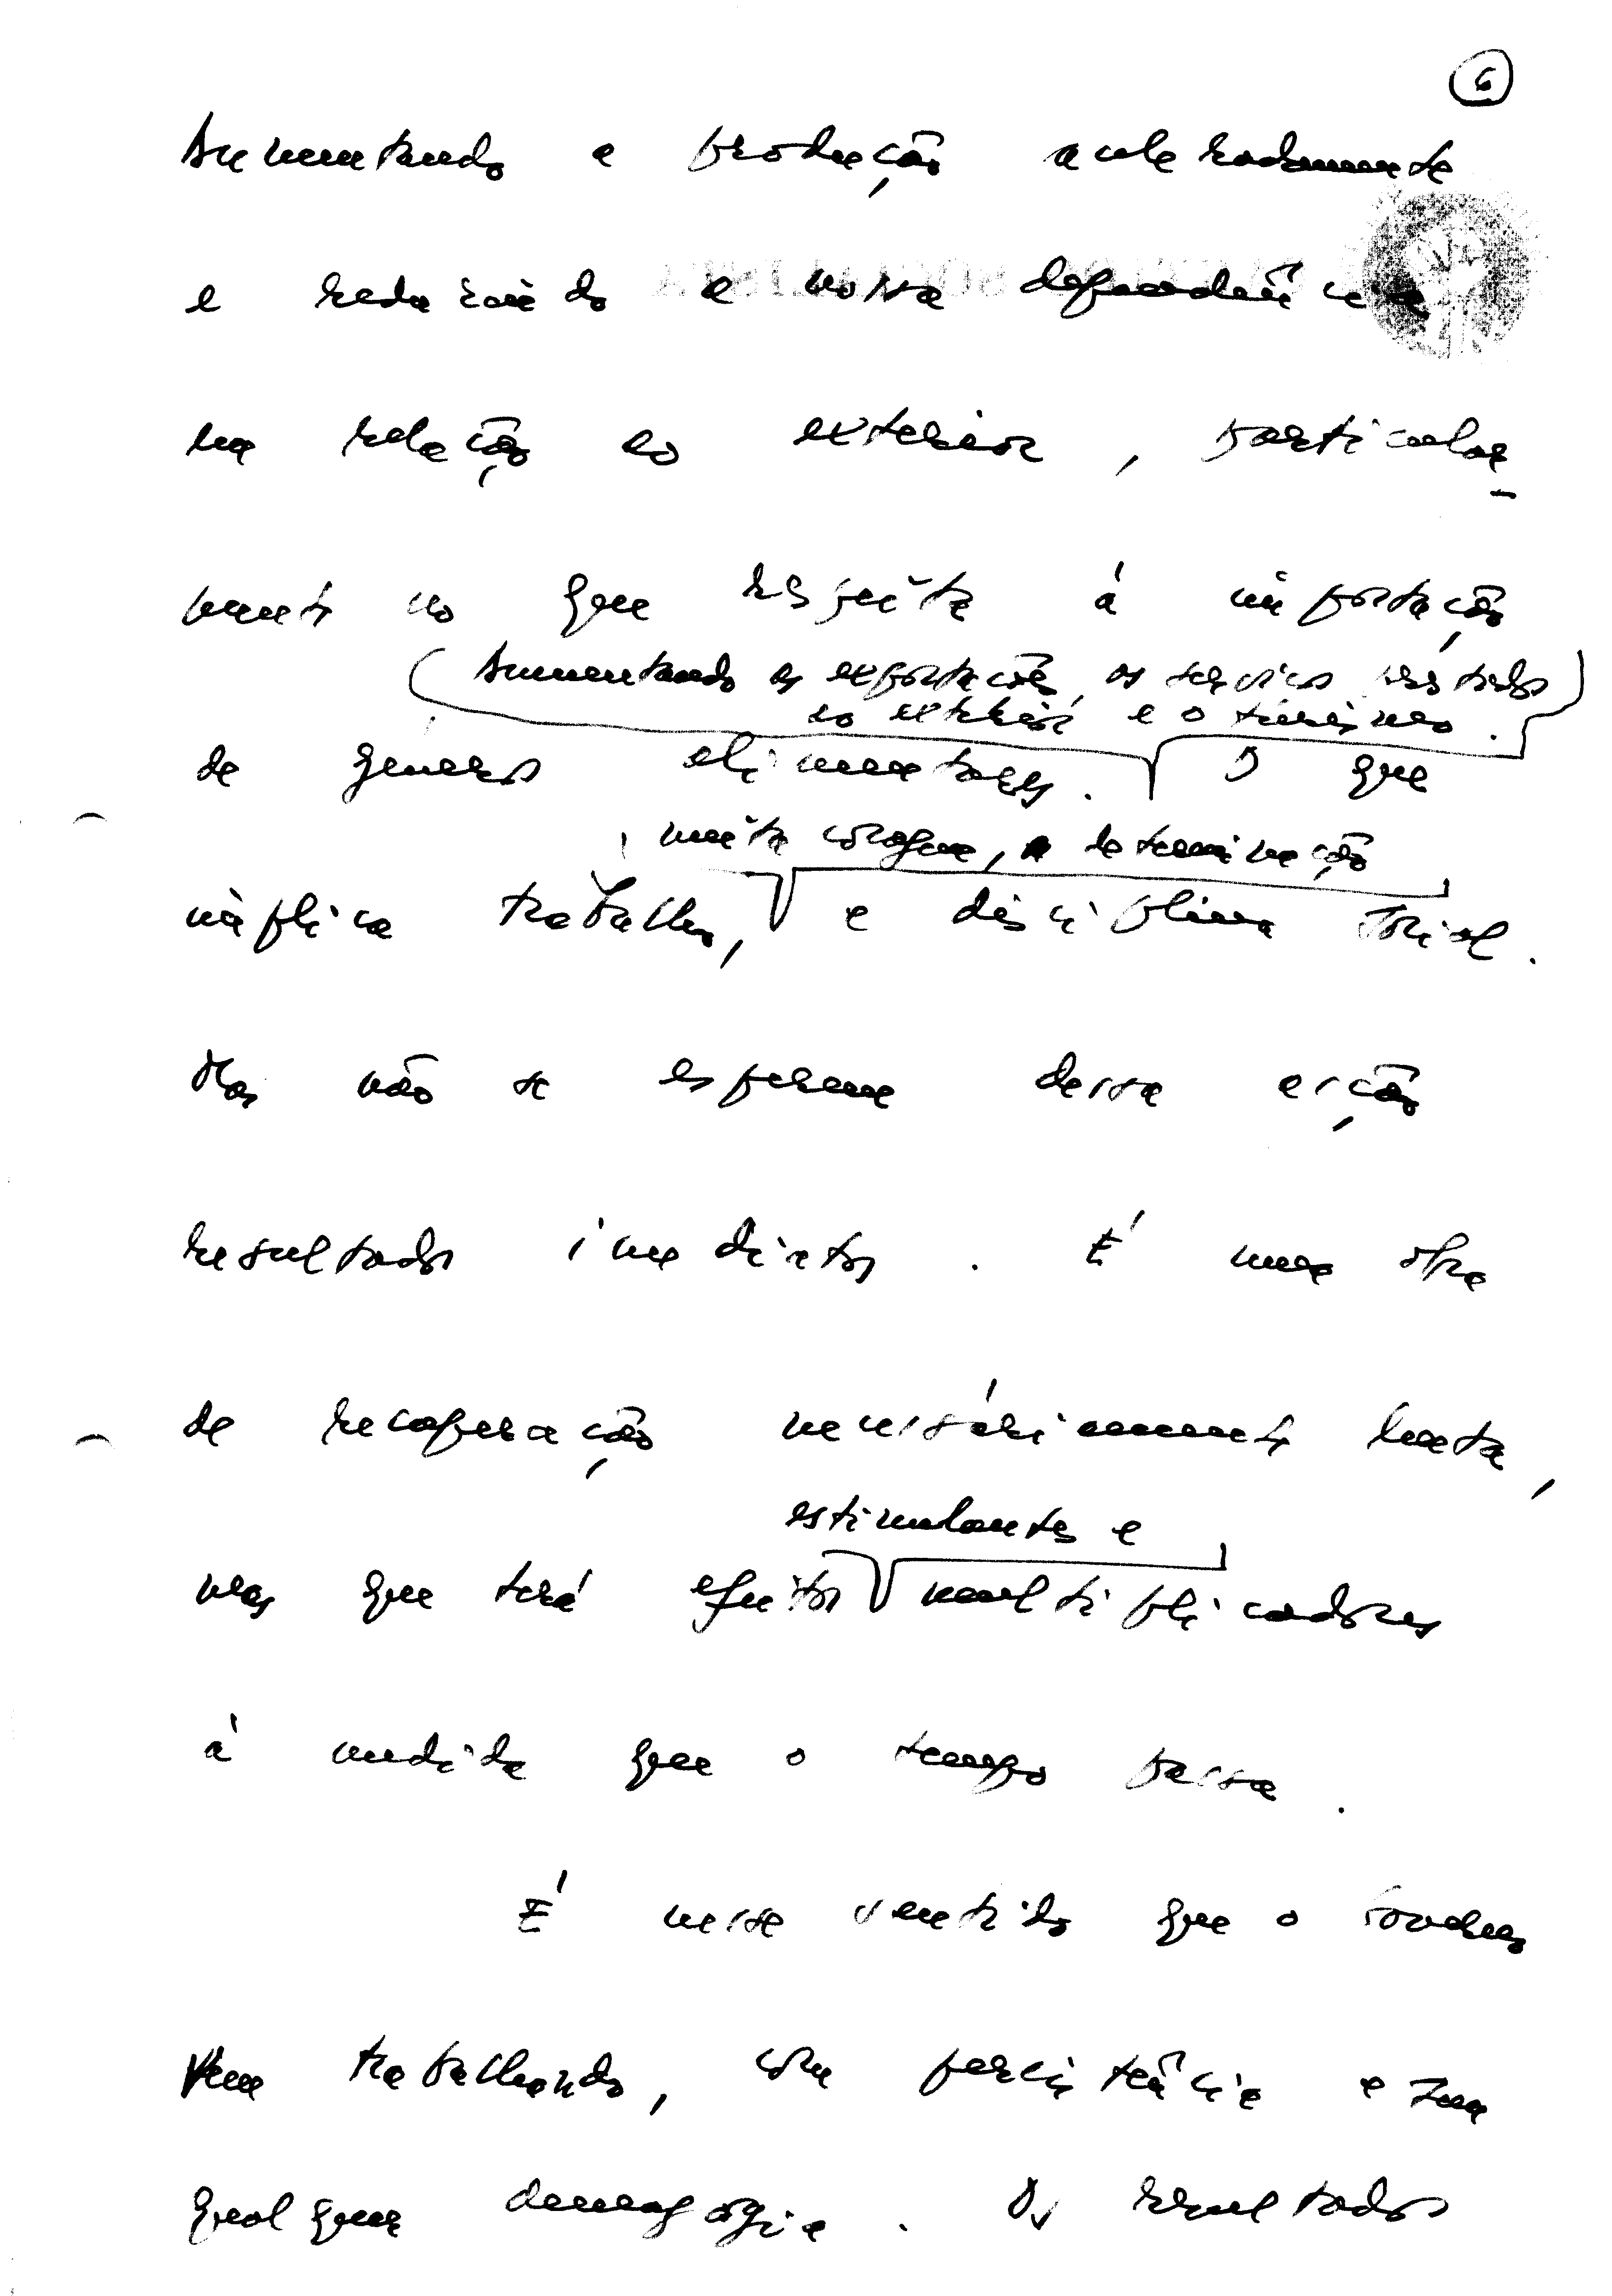 6
Aumentando a produção aceleradamente
e reduzindo a nossa dependência
na relação ao exterior, particular-
mente no que respeita à importação
(Aumentando as exportações, os serviços prestados
ao exterior e o turismo.)
de géneros alimentares. O que
muita coragem, determinação
implica trabalho, e disciplina social.
Mas não se espere dessa acção
resultados imediatos. É uma obra
de recuperação necessáriamente lenta,
estimulantes e
mas que terá efeitos multiplicadores
à medida que o tempo passa.
É nesse sentido que o Governo
vem trabalhando, com persistência e sem
qualquer demagogia. Os resultados